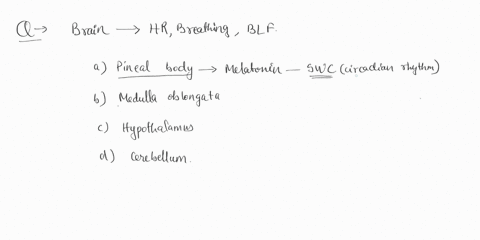 Q → Brain → HR, Breathing, BLF.
a) Pineal body → Melatonin — SWC (circadian rhythm)
b) Medulla oblongata
c) Hypothalamus
d) Cerebellum.